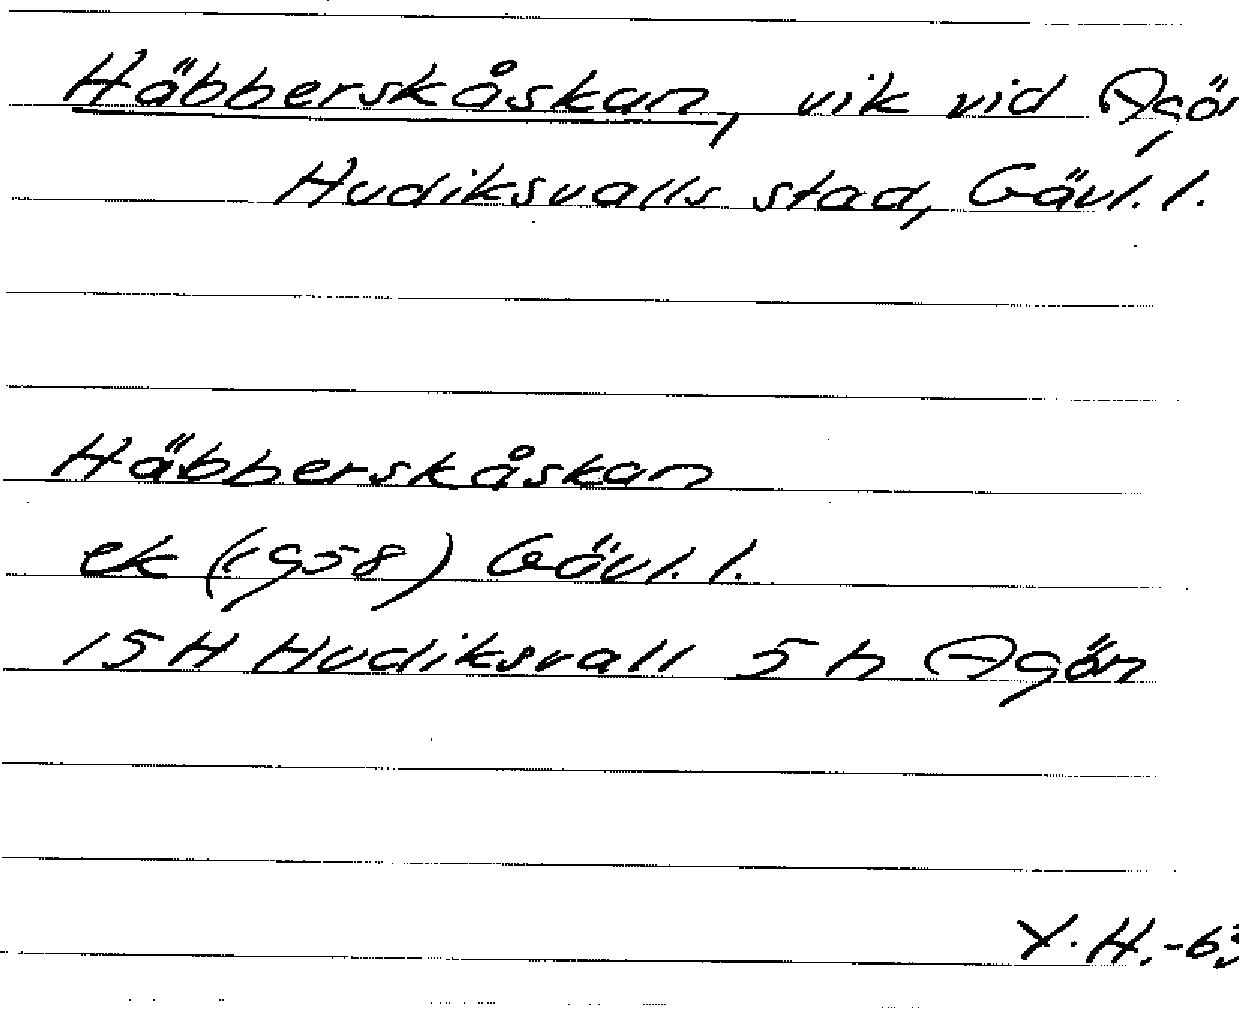 Häbberskåskan, vik vid Agön
Hudiksvalls stad, Gävl. l.
Häbberskåskan
ek (1958) Gävl. l.
15 H Hudiksvall 5 h Agön
Y. H. -63